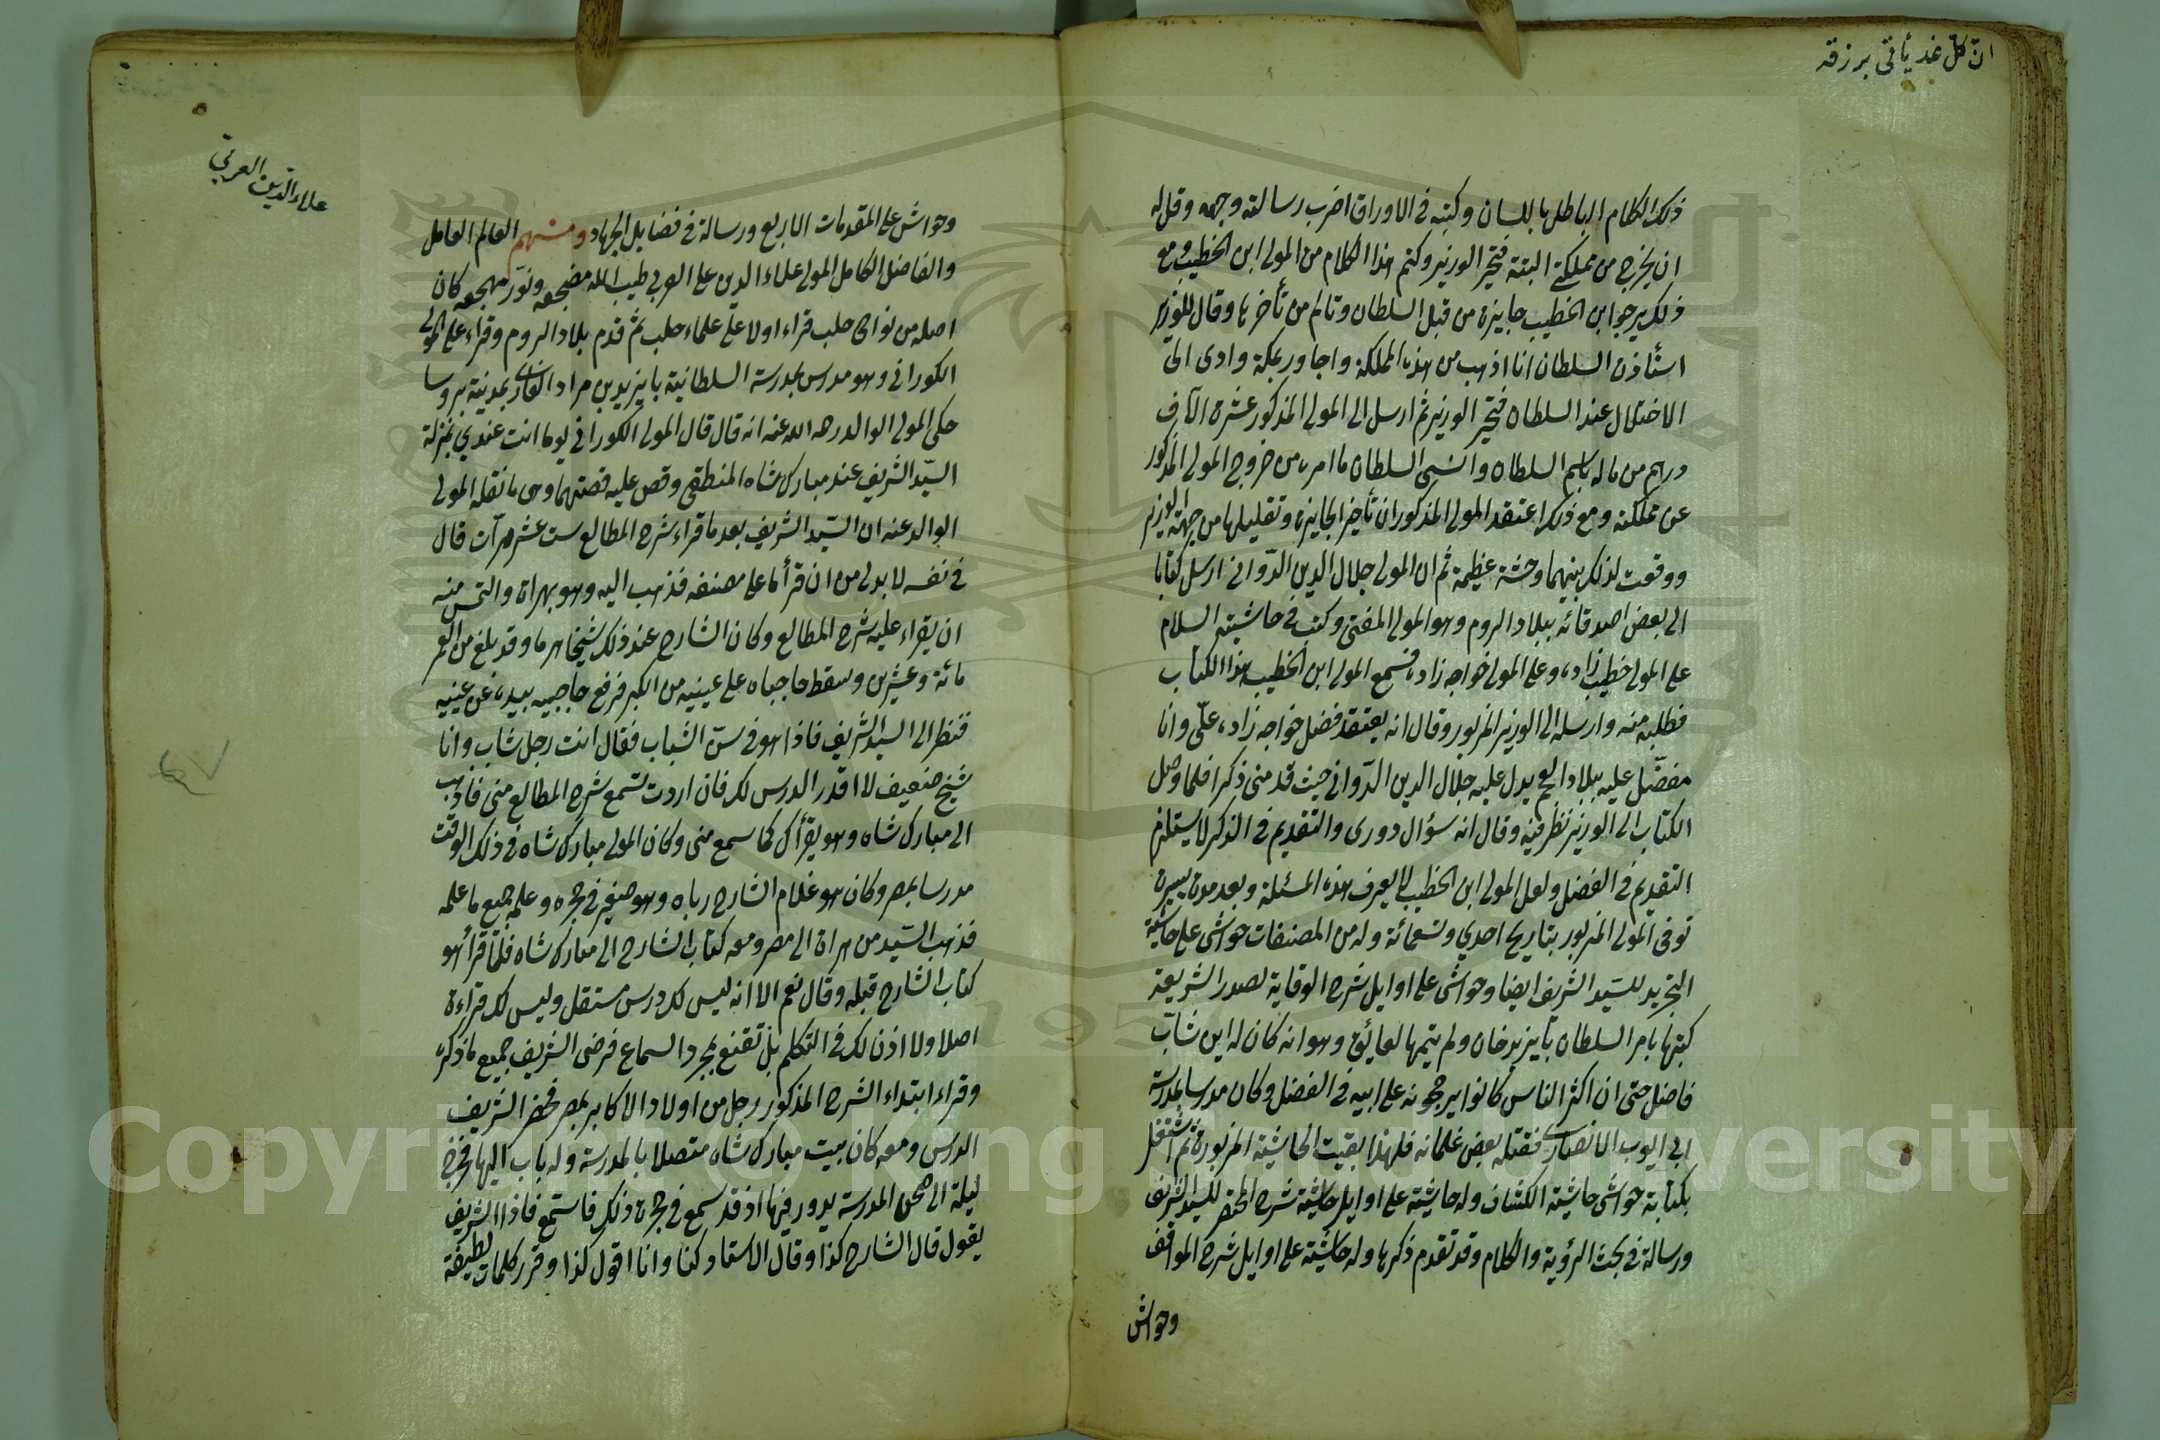 ان كل غد يأتى برزقه
ذلك الكلام الباطل باللسان وكتبه فى الاوراق اضرب رسالته وجهه وقل له
ان يخرج من مملكتى البتة فتحير الوزير وكتم هذا الكلام من المولى ابن الخطيب ومع
ذلك يرجو ابن الخطيب جايزة من قبل السلطان وتالم من تأخرها وقال للوزير
استأذن السلطان انا اذهب من هذه المملكة واجاور بمكة وادى الى
الاختلال عند السلطان فتحير الوزير ثم ارسل الى المولى المذكور عشرة الآف
دراهم من ماله باسم السلطان وانسى السلطان ما امره من خروج المولى المذكور
عن مملكته ومع ذلك اعتقد المولى المذكور ان تأخير الجايزة وتقليلها من جهة الوزير
ووقعت لذلك بينهما وحشة عظيمة ثم ان المولى جلال الدين الدوانى ارسل كتابا
الى بعض اصدقائه ببلاد الروم وهو المولى المفتى وكتب فى حاشيته السلام
على المولى خطيب زاده وعلى المولى خواجه زاده فسمع المولى ابن الخطيب هذا الكتاب
فطلبه منه وارسله الى الوزير المزبور وقال انه يعتقد فضل خواجه زاده علىّ وانا
مفضّل عليه ببلاد العجم يدل عليه جلال الدين الدوانى حيث قدمنى ذكرا فلما وصل
الكتاب الى الوزير نظر فيه وقال انه سؤال دورى والتقديم فى الذكر لا يستلزم
التقديم فى الفضل ولعل المولى ابن الخطيب لا يعرف هذه المسئلة وبعد مدة يسيرة
توفى المولى المزبور بتاريخ احدي وتسعمائة وله من المصنفات حواشى على حاشية
التجريد للسيد الشريف ايضا وحواشى على اوايل شرح الوقاية لصدر الشريعة
كتبها بامر السلطان بايزيد خان ولم يتمها لعايق وهو انه كان له ابن شاب
فاضل حتى ان اكثر الناس كانوا يرجحونه على ابيه فى الفضل وكان مدرسا بمدرسة
ابى ايوب الانصارى فقتله بعض غلمانه فلهذا بقيت الحاشية المزبورة ثم اشتغل
بكتابة حواشى حاشية الكشاف وله حاشية على اوايل حاشية شرح المختصر للسيد الشريف
ورسالة فى بحث الرؤية والكلام وقد تقدم ذكرها وله حاشية على اوايل شرح المواقف
وحواش
علاء الدين العربى
وحواش على المقدمات الاربع ورسالة فى فضايل الجهاد ومنهم العالم العامل
والفاضل الكامل المولى علاء الدين على العربى طيب الله مضجعه ونور مهجعه كان
اصله من نواحى حلب قراء اولا على علماء حلب ثم قدم بلاد الروم وقراء على المولى
الكورانى وهو مدرس بمدرسة السلطانية بايزيد بن مراد الغازى بمدينة بروسا
حكى المولى الوالد رحمه الله عنه انه قال قال المولى الكورانى يوما انت عندي بمنزلة
السيّد الشريف عند مباركشاه المنطقى وقص عليه قصتهما وهى ما نقله المولى
الوالد عنه ان السيّد الشريف بعد ما قراء شرح المطالع ست عشر مرّات قال
فى نفسه لا بد لى من ان قرأ ما على مصنفه فذهب اليه وهو بهراة والتمس منه
ان يقراء عليه شرح المطالع وكان الشارح عند ذلك شيخا هرما وقد بلغ من العمر
مائة وعشرين وسقط حاجباه على عينيه من الكبر فرفع حاجبيه بيده عن عينيه
فنظر الى السيد الشريف فاذا هو فى سن الشباب فقال انت رجل شاب وانا
شيخ ضعيف لا اقدر الدرس لك فان اردت تسمع شرح المطالع منى فاذهب
الى مبارك شاه وهو يقرأك كما سمع منى وكان المولى مبارك شاه فى ذلك الوقت
مدرسا بمصر وكان هو غلام الشارح رباه وهو صغير فى حجره وعلمه جميع ما علمه
فذهب السيّد من هراة الى مصر ومعه كتاب الشارح الى مبارك شاه فلما قرأ هو
كتاب الشارح قبله وقال نعم الا انه ليس لك درس مستقل وليس لك قراءة
اصلا ولا اذن لك فى التكلم بل تقنع بمجرد السماع فرضى الشريف جميع ما ذكره
وقراء ابتداء الشرح المذكور رجل من اولاد الاكابر بمصر فحضر الشريف
الدرس ومعه كان بيت مبارك شاه متصلا بالمدرسة وله باب اليها فخرج
ليلة الى صحن المدرسة يدور فيها اذ قد سمع فى حجرة ذلك فاستمع فاذا الشريف
يقول قال الشارح كذا وقال الاستاد كذا وانا اقول كذا وقرر كلمات لطيفة
Copyright © King University
195